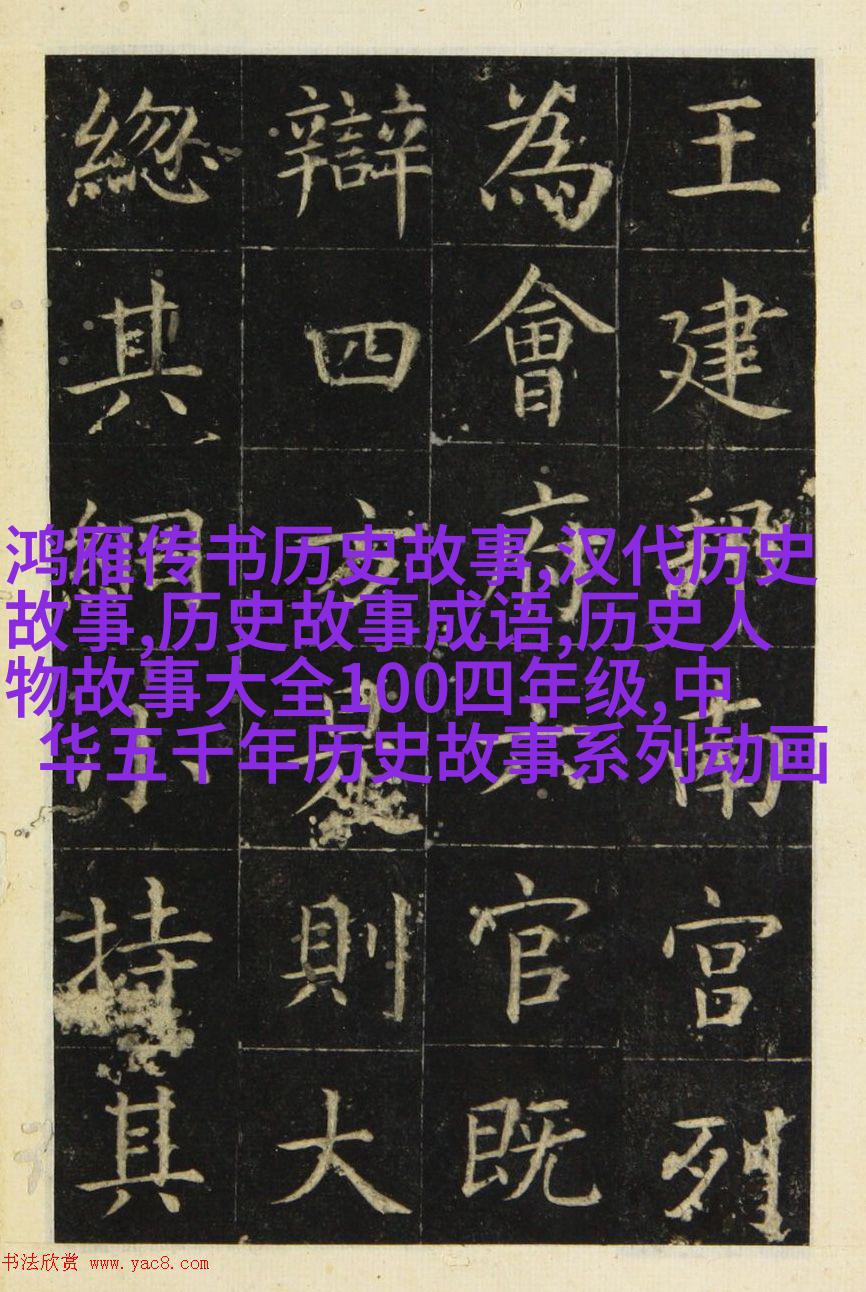 王建南宮列
為會府六官既
辯四方是則大
緫其綱小持其
鸿雁传书历史故事,汉代历史
故事,历史故事成语,历史人
物故事大全100四年级,中
华五千年历史故事系列动画
书法欣赏 www.yac8.com